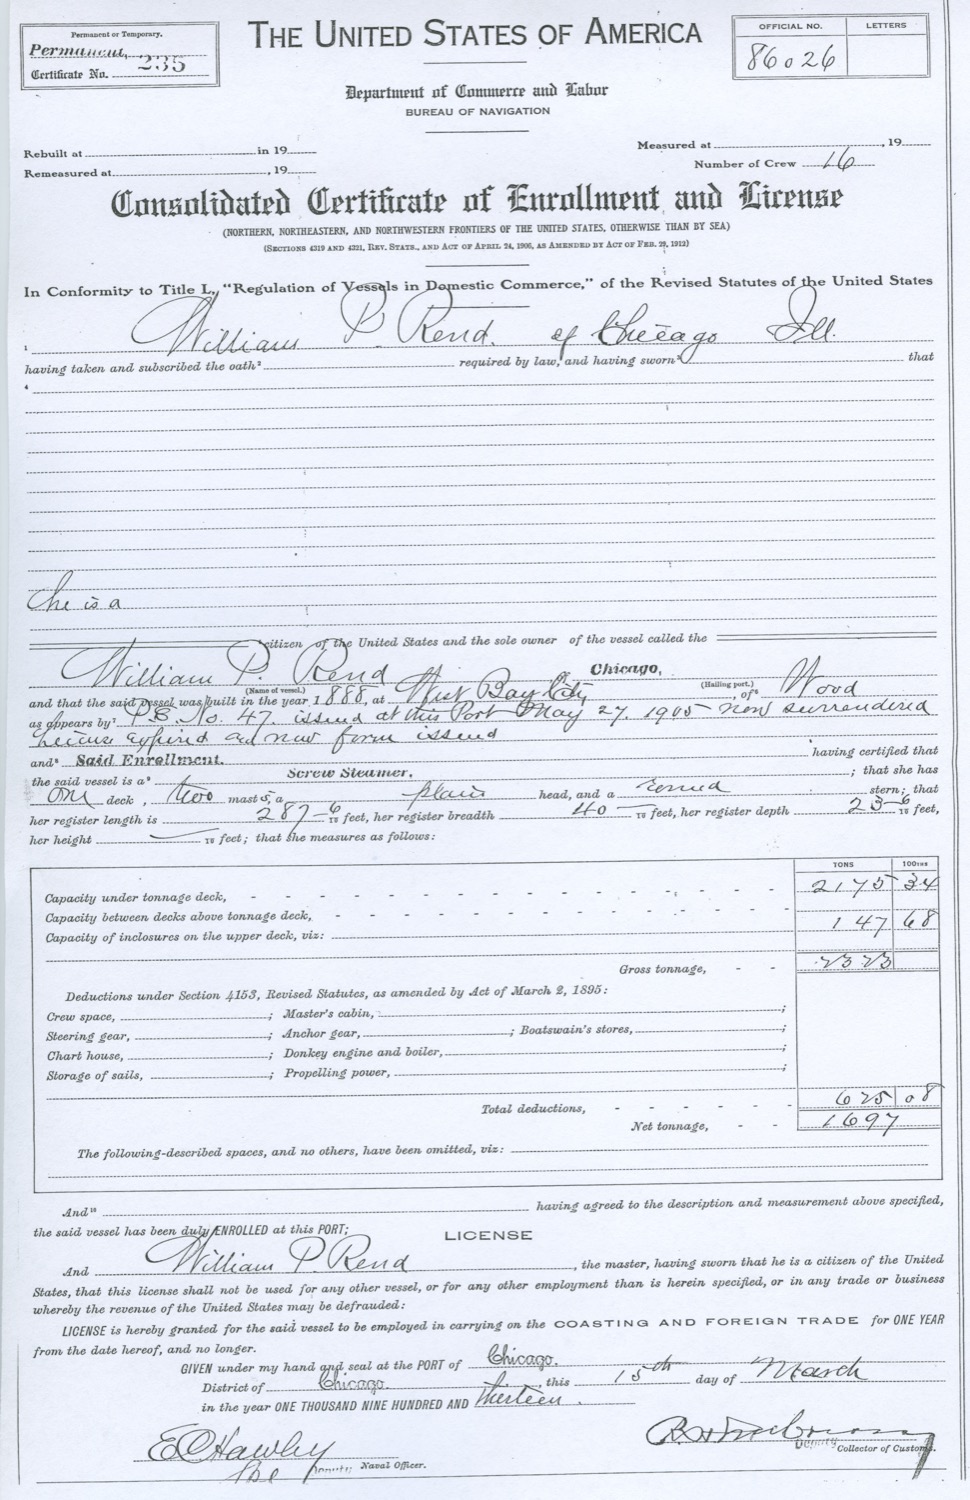 Permanent or Temporary.
Permanent,
Certificate No. 235
THE UNITED STATES OF AMERICA
OFFICIAL NO. LETTERS
86026
Department of Commerce and Labor
BUREAU OF NAVIGATION
Rebuilt at in 19
Measured at , 19
Remeasured at , 19
Number of Crew 16
Consolidated Certificate of Enrollment and License
(NORTHERN, NORTHEASTERN, AND NORTHWESTERN FRONTIERS OF THE UNITED STATES, OTHERWISE THAN BY SEA)
(SECTIONS 4319 AND 4321, REV. STATS., AND ACT OF APRIL 24, 1906, AS AMENDED BY ACT OF FEB. 29, 1912)
In Conformity to Title L, "Regulation of Vessels in Domestic Commerce," of the Revised Statutes of the United States
1 William P. Rend. of Chicago Ill.
having taken and subscribed the oath² required by law, and having sworn³ that
4
he is a
citizen of the United States and the sole owner of the vessel called the
William P. Rend Chicago,
(Name of vessel.) (Hailing port.)
and that the said vessel was built in the year 1888, at West Bay City, of⁶ Wood
as appears by⁷ P.E. No. 47. issued at this Port May 27. 1905 now surrendered
license expired and new form issued
and⁸ Said Enrollment. having certified that
the said vessel is a⁹ Screw Steamer, ; that she has
one deck, two masts, a plain head, and a round stern; that
her register length is 287 6/10 feet, her register breadth 40 — /10 feet, her register depth 23 6/10 feet,
her height — /10 feet; that she measures as follows:
TONS 100THS
Capacity under tonnage deck, 2175 34
Capacity between decks above tonnage deck, 147 68
Capacity of inclosures on the upper deck, viz:
Gross tonnage, 2323
Deductions under Section 4153, Revised Statutes, as amended by Act of March 2, 1895:
Crew space, ; Master's cabin, ;
Steering gear, ; Anchor gear, ; Boatswain's stores, ;
Chart house, ; Donkey engine and boiler, ;
Storage of sails, ; Propelling power, ;
Total deductions, 625 08
Net tonnage, 1697
The following-described spaces, and no others, have been omitted, viz:
And¹⁰ having agreed to the description and measurement above specified,
the said vessel has been duly ENROLLED at this PORT;
LICENSE
And William P Rend, the master, having sworn that he is a citizen of the United
States, that this license shall not be used for any other vessel, or for any other employment than is herein specified, or in any trade or business
whereby the revenue of the United States may be defrauded:
LICENSE is hereby granted for the said vessel to be employed in carrying on the COASTING AND FOREIGN TRADE for ONE YEAR
from the date hereof, and no longer.
GIVEN under my hand and seal at the PORT of Chicago.
District of Chicago, this 15th day of March
in the year ONE THOUSAND NINE HUNDRED AND thirteen.
E C Hawley
Deputy Naval Officer.
Deputy Collector of Customs.